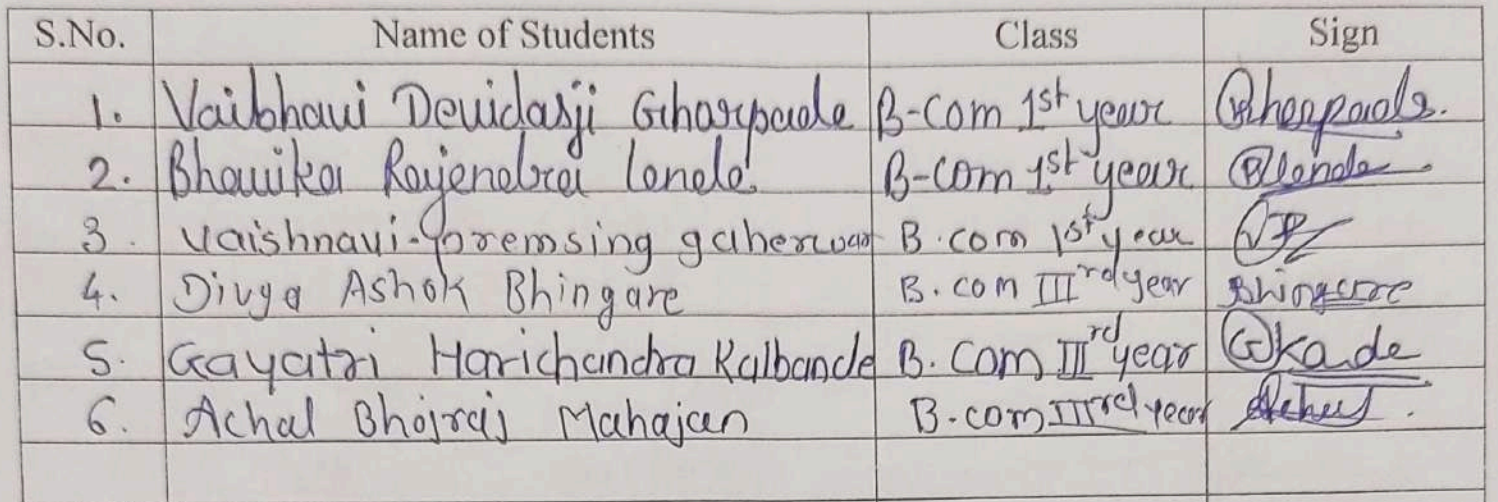 S.No. Name of Students Class Sign
1. Vaibhavi Devidasji Gharpade B-Com 1st year Gharpade.
2. Bhavika Rajendra Londe. B-Com 1st year Blonde.
3. Vaishnavi-premsing gaherwar B.com 1st year
4. Divya Ashok Bhingare B.com IIIrd year Bhingare
5. Gayatri Harichandra Kalbande B.Com IIIrd year Gkade
6. Achal Bhojraj Mahajan B.com IIIrd year